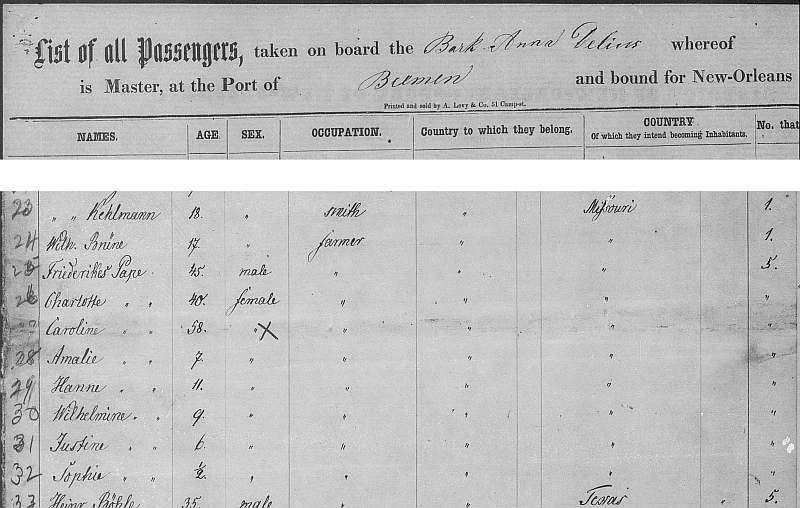 List of all Passengers, taken on board the Bark Anna Delius whereof
is Master, at the Port of Bremen and bound for New-Orleans
Printed and sold by A. Levy & Co. 51 Camp-st.
NAMES. AGE. SEX. OCCUPATION. Country to which they belong. COUNTRY Of which they intend becoming Inhabitants. No. that
23 " " Kehlmann 18. " smith " Missouri 1.
24 Wilh. Brüne 17. " farmer " " 1.
25 Friederikes Pape 45. male " " " 5.
26 Charlotte " " 40. female " " " "
Caroline " " 58. " X " " " "
28 Amalie " " 7. " " " " "
29 Hanne " " 11. " " " " "
30 Wilhelmine " " 9. " " " " "
31 Justine " " 6. " " " " "
32 Sophie " " ½. " " " " "
33 Heinr. Böhle 35. male " " Texas " 5.